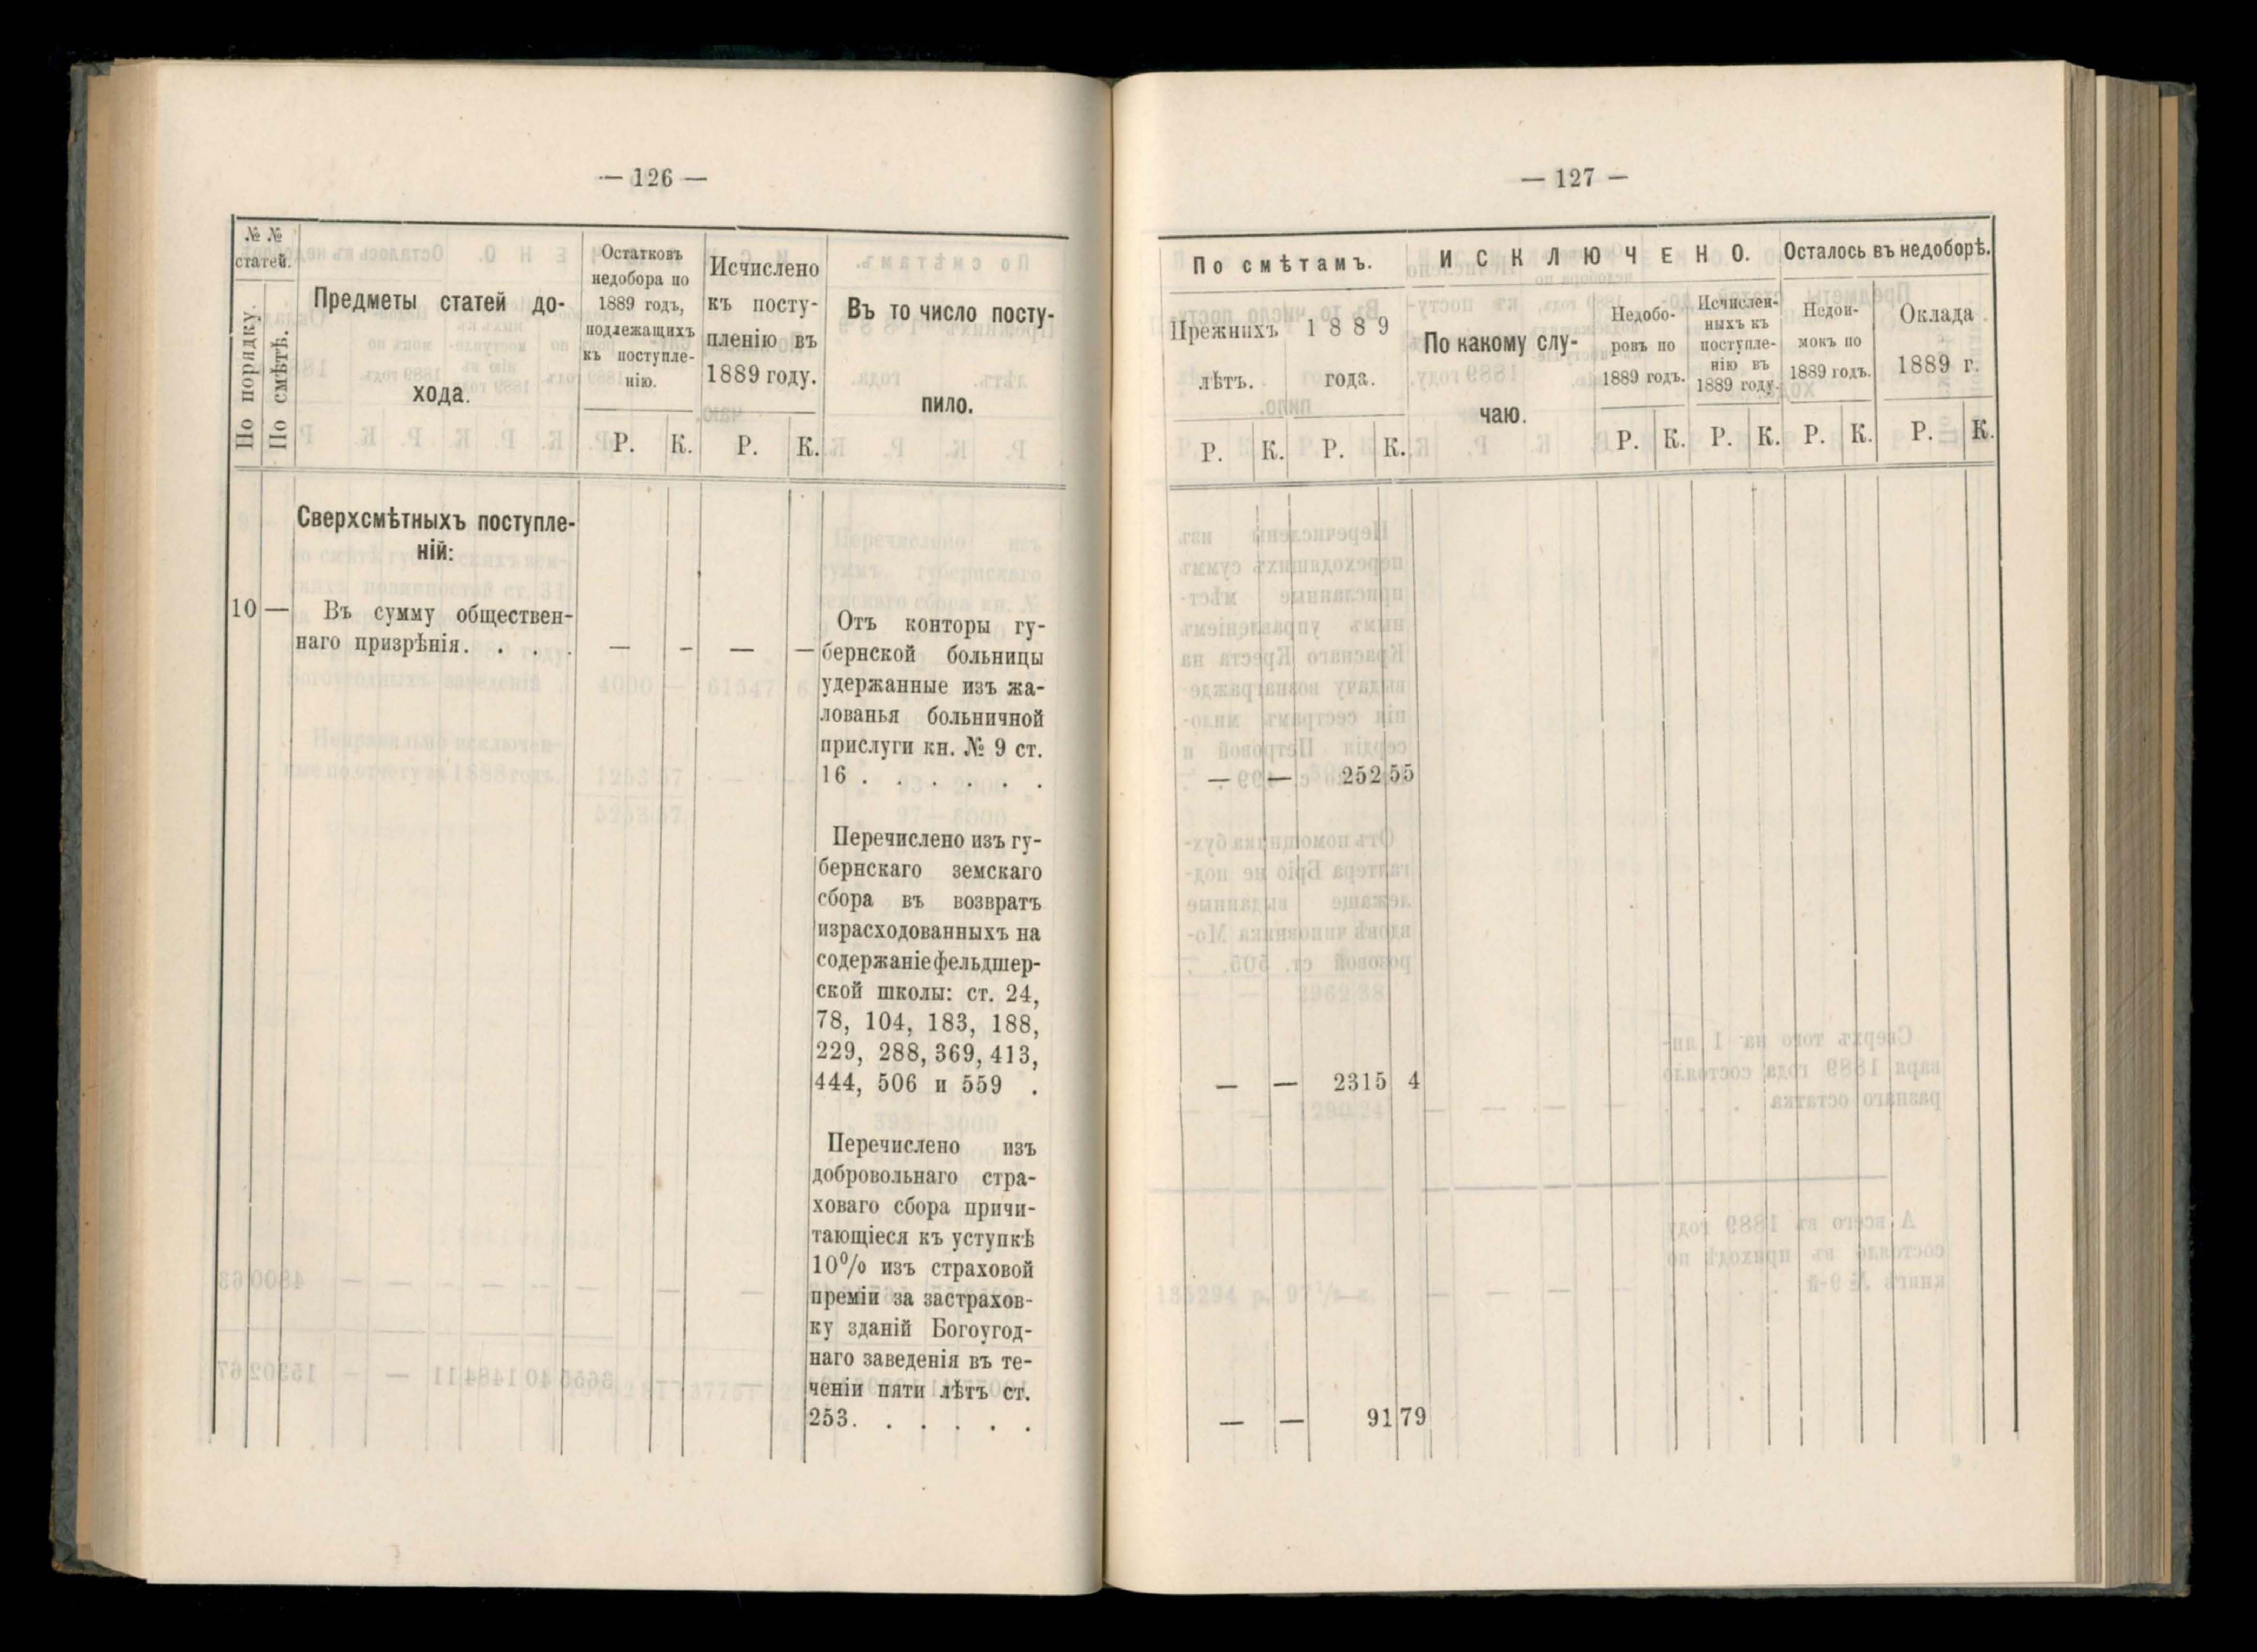 — 126 —
№ №
статей.
По порядку.
По смѣтѣ.
Предметы статей до-
хода.
Остатковъ
недобора по
1889 годъ,
подлежащихъ
къ поступле-
нію.
Исчислено
къ посту-
пленію въ
1889 году.
Въ то число посту-
пило.
Р. К. Р. К.
Сверхсмѣтныхъ поступле-
ній:
10 — Въ сумму обществен-
наго призрѣнія. . . . — - — —
Отъ конторы гу-
бернской больницы
удержанные изъ жа-
лованья больничной
прислуги кн. № 9 ст.
16 . . . . . .
Перечислено изъ гу-
бернскаго земскаго
сбора въ возвратъ
израсходованныхъ на
содержаніе фельдшер-
ской школы: ст. 24,
78, 104, 183, 188,
229, 288, 369, 413,
444, 506 и 559 .
Перечислено изъ
добровольнаго стра-
ховаго сбора причи-
тающіеся къ уступкѣ
10% изъ страховой
преміи за застрахов-
ку зданій Богоугод-
наго заведенія въ те-
ченіи пяти лѣтъ ст.
253. . . . . .
— 127 —
По смѣтамъ.
Прежнихъ
лѣтъ.
1889
года.
ИСКЛЮЧЕНО.
По какому слу-
чаю.
Недобо-
ровъ по
1889 годъ.
Исчислен-
ныхъ къ
поступле-
нію въ
1889 году.
Осталось въ недоборѣ.
Недои-
мокъ по
1889 годъ.
Оклада
1889 г.
Р. К. Р. К. Р. К. Р. К. Р. К. Р. К.
— — 252 55
— — 2315 4
— — 91 79